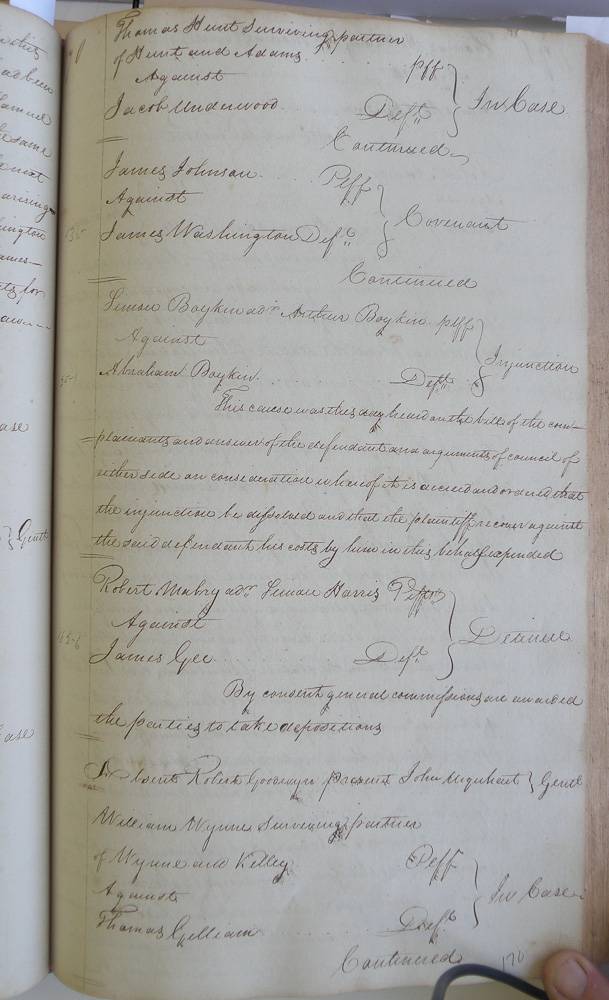 Thomas Hunt Surviving partner
of Hunt and Adams Plff
Against } In Case
Jacob Underwood Deft
Continued
James Johnson Plff
Against } Covenant
James Washington Deft
Continued
Simon Boykin adr Arthur Boykin plff
Against } Injunction
Abraham Boykin Deft
This cause was this day heard on the bill of the com-
plainants and answer of the defendant and arguments of council of
either side on consideration whereof it is decreed and ordered that
the injunction be dissolved and that the plaintiff recover against
the said defendant his costs by him in this behalf expended
Robert Mabry adr Simon Harris Plff
Against } Detinue
James Gee Deft
By consent general commissions are awarded
the parties to take depositions
Absent Robert Goodwyn present John Urquhart } Gentt
William Wynne Surviving partner
of Wynne and Kelley Plff
Against } In Case
Thomas Gilliam Deft
Continued
170